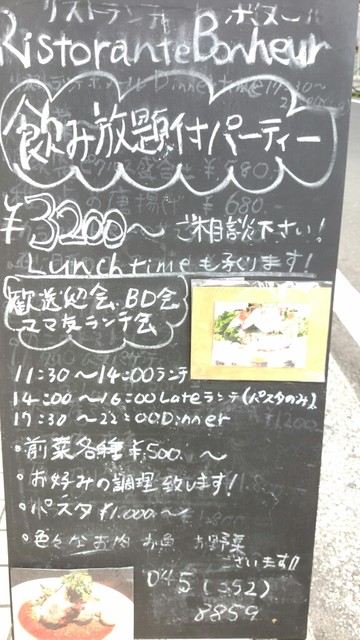 リストランテ ボヌール
Ristorante Bonheur
飲み放題付パーティー
¥3200〜 ご相談下さい!
Lunchtimeも承ります!
歓送迎会、BD会
ママ友ランチ会
11:30〜14:00ランチ
14:00〜16:00Lateランチ(パスタのみ)
17:30〜22:00Dinner
・前菜各種¥500.〜
・お好みの調理致します!
・パスタ¥1.000.〜
・色々なお肉 お魚 お野菜
ございます!!
045(252)
8859